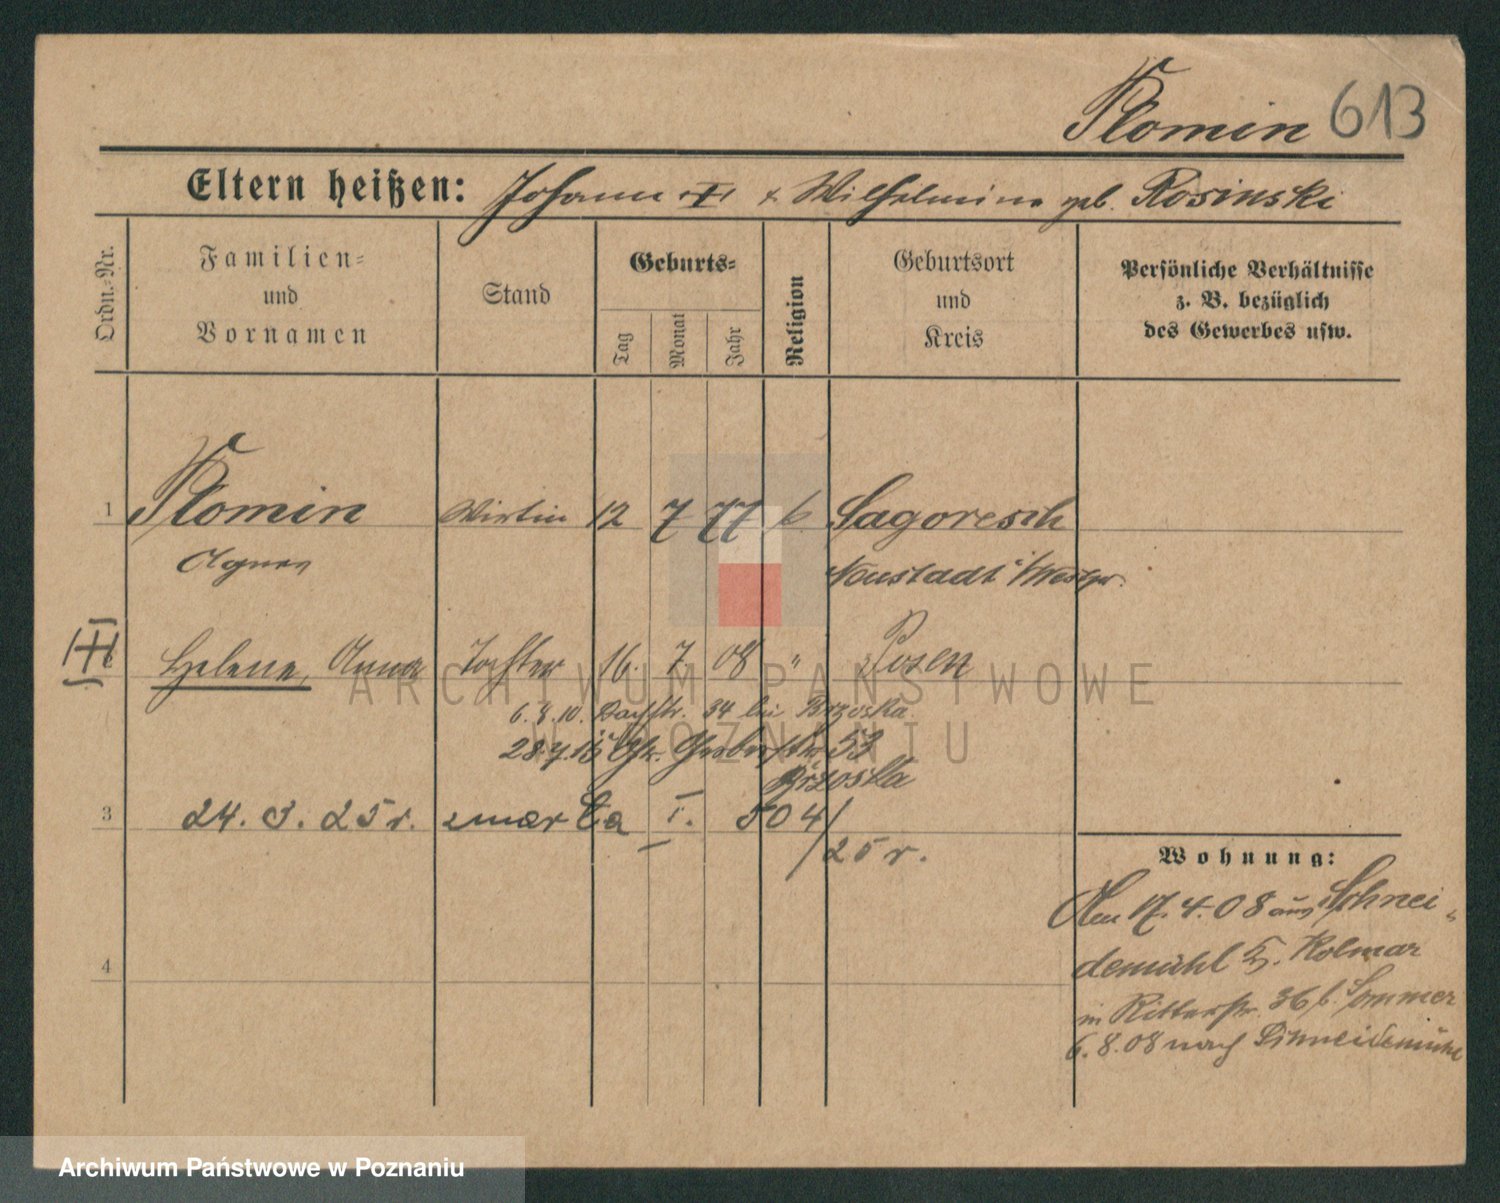 Plomin 613
Eltern heißen: Johann † & Wilhelmine geb. Rosinski
Ordn.-Nr.
Familien-
und
Vornamen
Stand
Geburts-
Tag
Monat
Jahr
Religion
Geburtsort
und
Kreis
Persönliche Verhältnisse
z. B. bezüglich
des Gewerbes usw.
1 Plomin Wirtin 12 7 77 k Sagoresch
Agnes Neustadt i/Westpr.
2 Helene, Anna Tochter 16. 7. 08 " Posen
6.8.10. 34 bei Brzoska
28.7.15 53
Brzoska
3 24. 3. 25 r. zmarła I. 504/
/25 r.
Wohnung:
Am 17.4.08 aus Schnei-
demühl K. Kolmar
in Ritterstr. 36 b. Sommer
6.8.08 nach Schneidemühl
4
ARCHIWUM PAŃSTWOWE
W POZNANIU
Archiwum Państwowe w Poznaniu